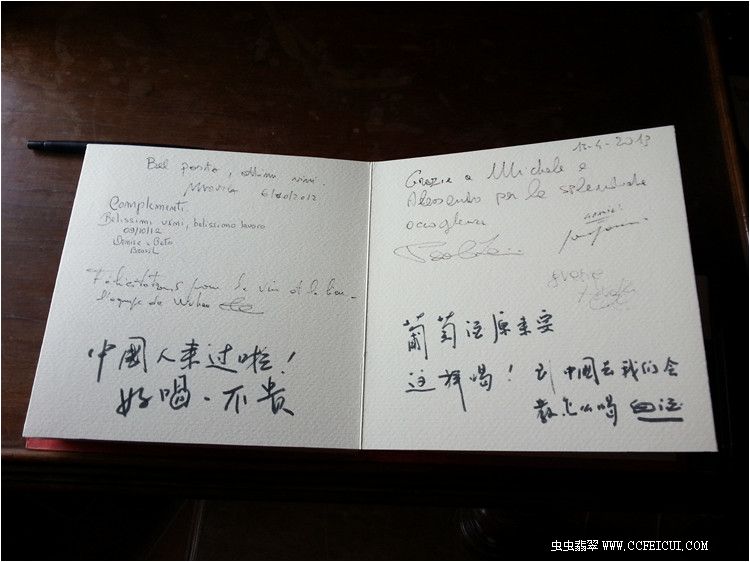 Bel posto, ottimi vini.
6/10/2012
Complementi.
Belissimi vini, belissimo lavoro
09/10/12
Brasil
Félicitations pour le vin et le lieu
L'équipe de Wuhan
中國人来过啦!
好喝、不贵
13-4-2013
Grazie a Michele e
Alessandro per la splendida
accoglienza
grazie
葡萄酒原来要
这样喝! 到中國去我们会
教怎么喝白酒
虫虫翡翠 WWW.CCFEICUI.COM